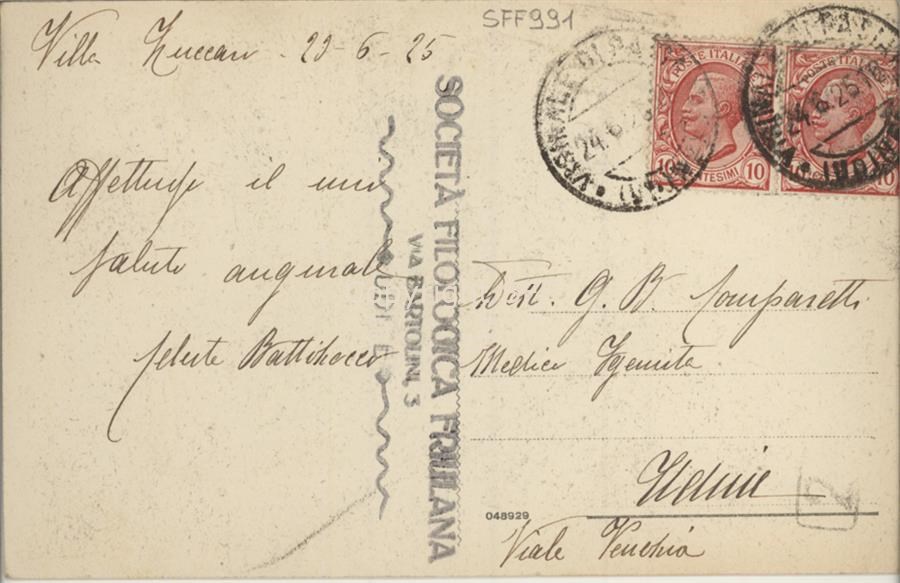 SFF991
Villa Zuccari - 23-6-25
Affettuoso il mio
saluto augurale
Battilocco
SOCIETÀ FILOLOGICA FRIULANA
VIA BARTOLINI, 3
UDINE
POSTE ITALIANE
10 CENTESIMI 10
POSTE ITALIANE
10
24.6.25
24.6.25
Dott. G. B. Comparetti
Medico Igienista
Udine
Viale Venezia
048929